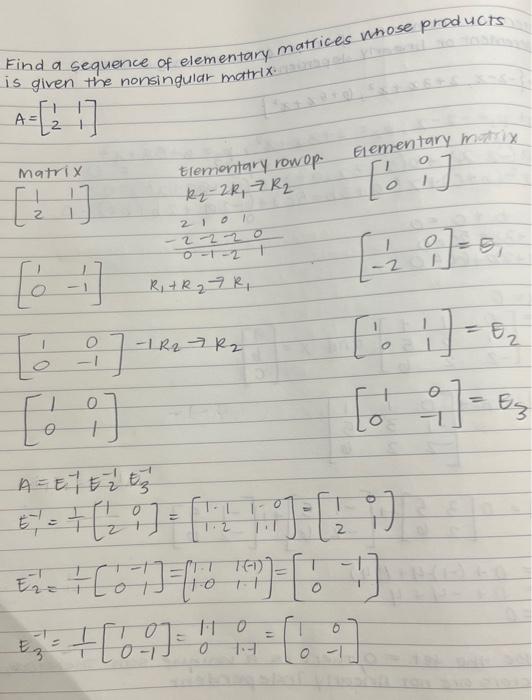 Find a sequence of elementary matrices whose products
is given the nonsingular matrix.
A = [1 1
2 1]
matrix Elementary row op. Elementary matrix
[1 1
2 1] R2 - 2R1 → R2 [1 0
0 1]
2 1 0 1
- 2 - 2 - 2 0
0 - 1 - 2 1
[1 0
-2 1] = E1
[1 1
0 -1] R1 + R2 → R1
[1 0
0 -1] -1R2 → R2 [1 1
0 1] = E2
[1 0
0 1] [1 0
0 -1] = E3
A = E1^-1 E2^-1 E3^-1
E1^-1 = 1/1 [1 0
2 1] = [1·1 1·0
1·2 1·1] = [1 0
2 1]
E2^-1 = 1/1 [1 -1
0 1] = [1·1 1(-1)
1·0 1·1] = [1 -1
0 1]
E3^-1 = 1/1 [1 0
0 -1] = 1·1 0
0 1·-1 = [1 0
0 -1]